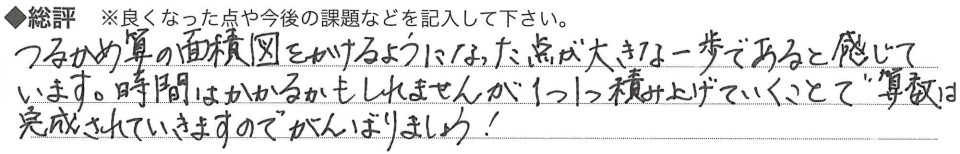 ◆総評 ※良くなった点や今後の課題などを記入して下さい。
つるかめ算の面積図をかけるようになった点が大きな一歩であると感じて
います。時間はかかるかもしれませんが1つ1つ積み上げていくことで算数は
完成されていきますのでがんばりましょう!